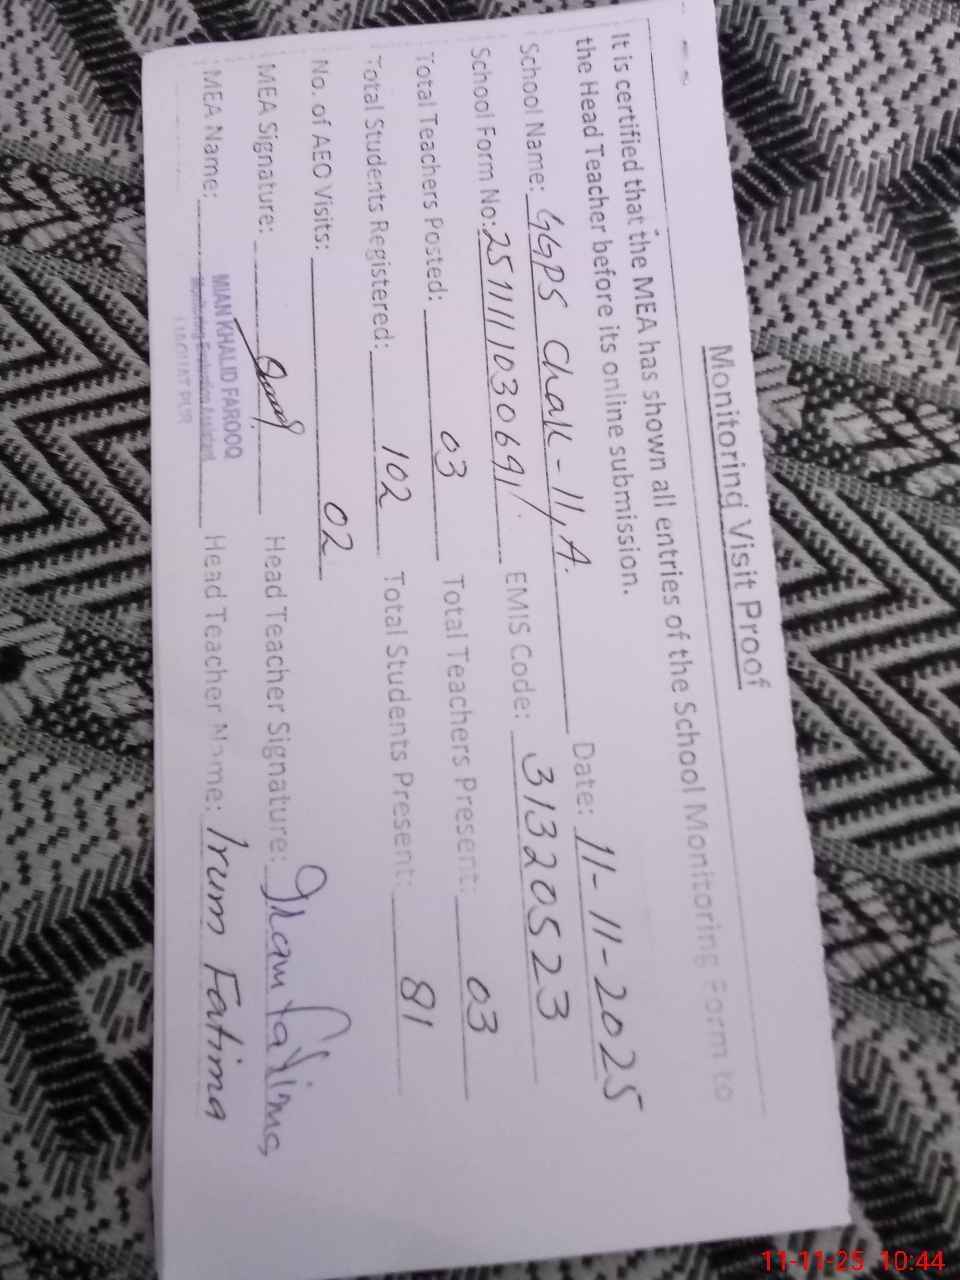 Monitoring Visit Proof
It is certified that the MEA has shown all entries of the School Monitoring Form to
the Head Teacher before its online submission.
School Name: GGPS Chak-11/A. Date: 11-11-2025
School Form No: 251111030691 EMIS Code: 31320523
Total Teachers Posted: 03 Total Teachers Present: 03
Total Students Registered: 102 Total Students Present: 81
No. of AEO Visits: 02
MEA Signature: Head Teacher Signature: Irum Fatima
MEA Name: MIAN KHALID FAROOQ Head Teacher Name: Irum Fatima
Monitoring Evaluation Assistant
LIAQUATPUR
11-11-25 10:44